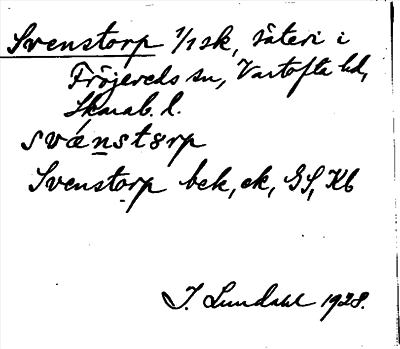 Svenstorp 1/1 sk, säteri i
Fröjereds sn, Vartofta hd,
Skarab. l.
svǽnstørp
Svenstorp bek, ek, GS, Kb
J. Lundahl 1928.